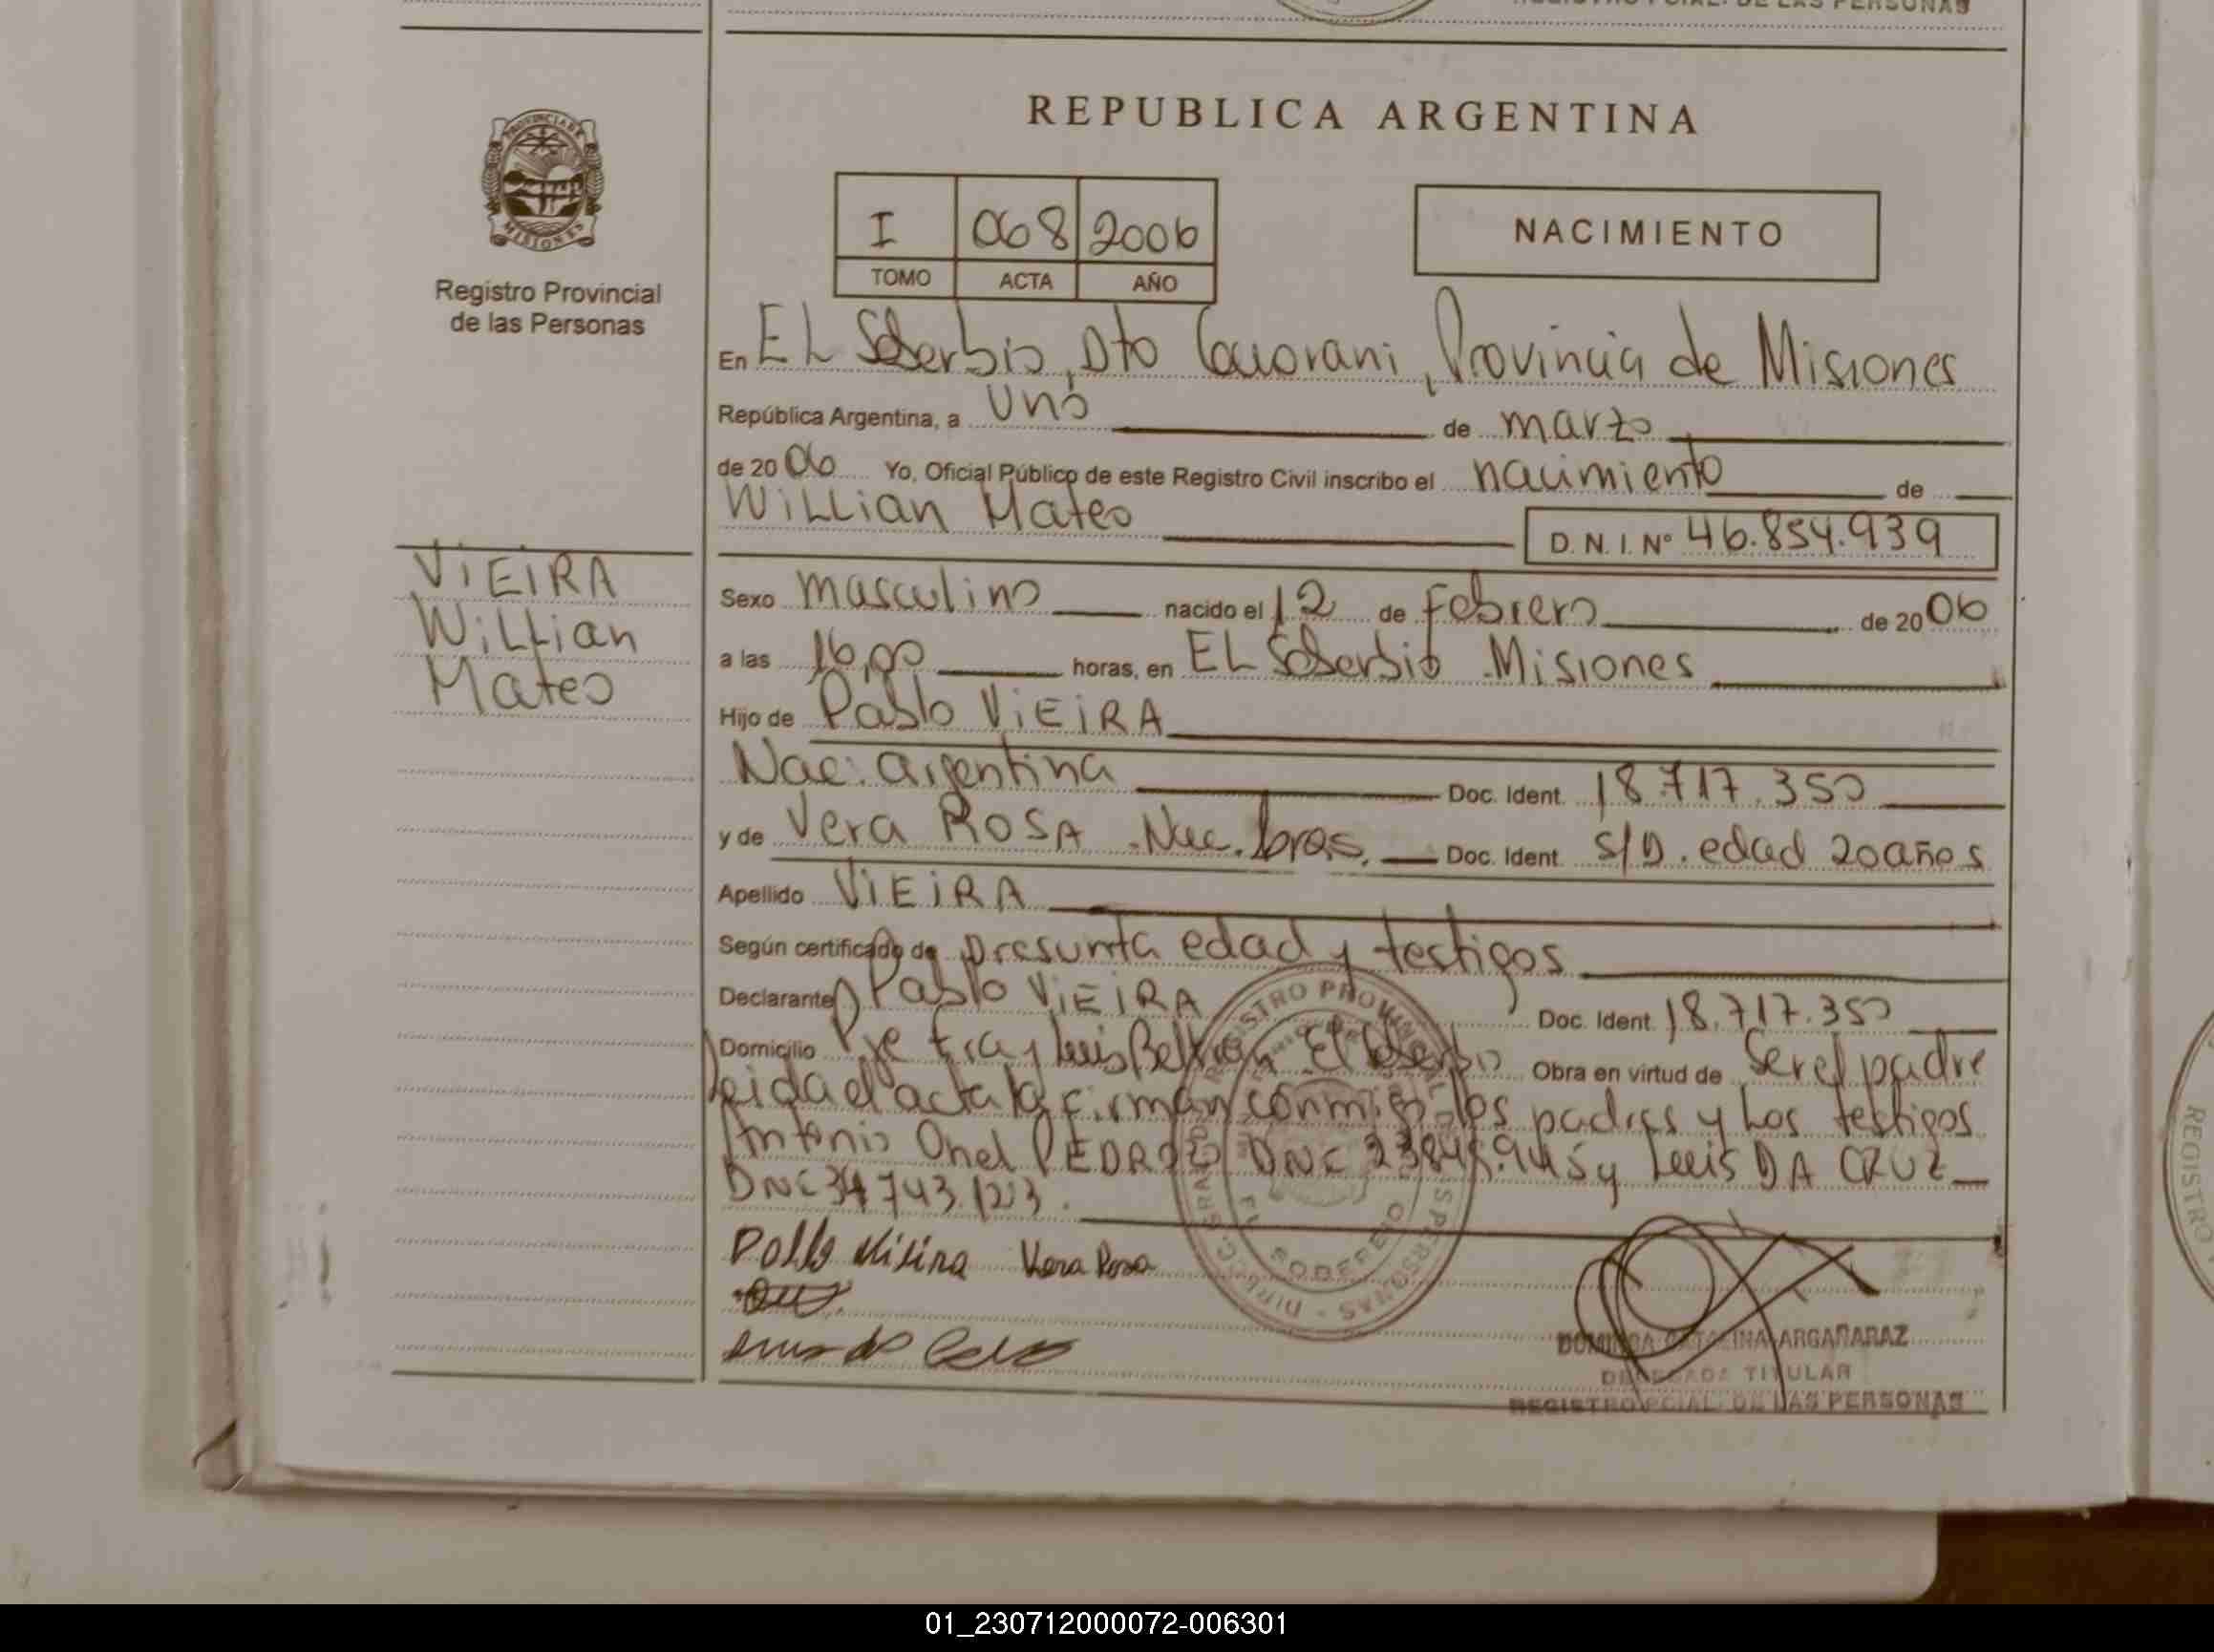 REGISTRO PCIAL. DE LAS PERSONAS
PROVINCIA DE
MISIONES
Registro Provincial
de las Personas
VIEIRA
Willian
Mateo
REPUBLICA ARGENTINA
I 068 2006
TOMO ACTA AÑO
NACIMIENTO
En EL Soberbio, Dto Guarani, Provincia de Misiones
República Argentina, a uno de marzo
de 20 06 Yo, Oficial Público de este Registro Civil inscribo el nacimiento de
Willian Mateo
D.N.I. Nº 46.854.939
Sexo masculino nacido el 12 de Febrero de 20 06
a las 16,00 horas, en EL Soberbio Misiones
Hijo de Pablo VIEIRA
Nac. argentina Doc. Ident. 18.717.350
y de Vera ROSA Nac. bras. Doc. Ident. S/D. edad 20 años
Apellido VIEIRA
Según certificado de presunta edad y testigos
Declarante Pablo VIEIRA Doc. Ident. 18.717.350
Domicilio Pje Fray Luis Beltran El Soberbio Obra en virtud de ser el padre
Leida el acta la firman conmigo los padres y Los testigos
Antonio Onel PEDROZO DNI y Luis DA CRUZ
DNI 34743.
Pablo Vieira Vera Rosa
DOMINGA CATALINA ARGAÑARAZ
DELEGADA TITULAR
REGISTRO PCIAL. DE LAS PERSONAS
REGISTRO
01_230712000072-006301